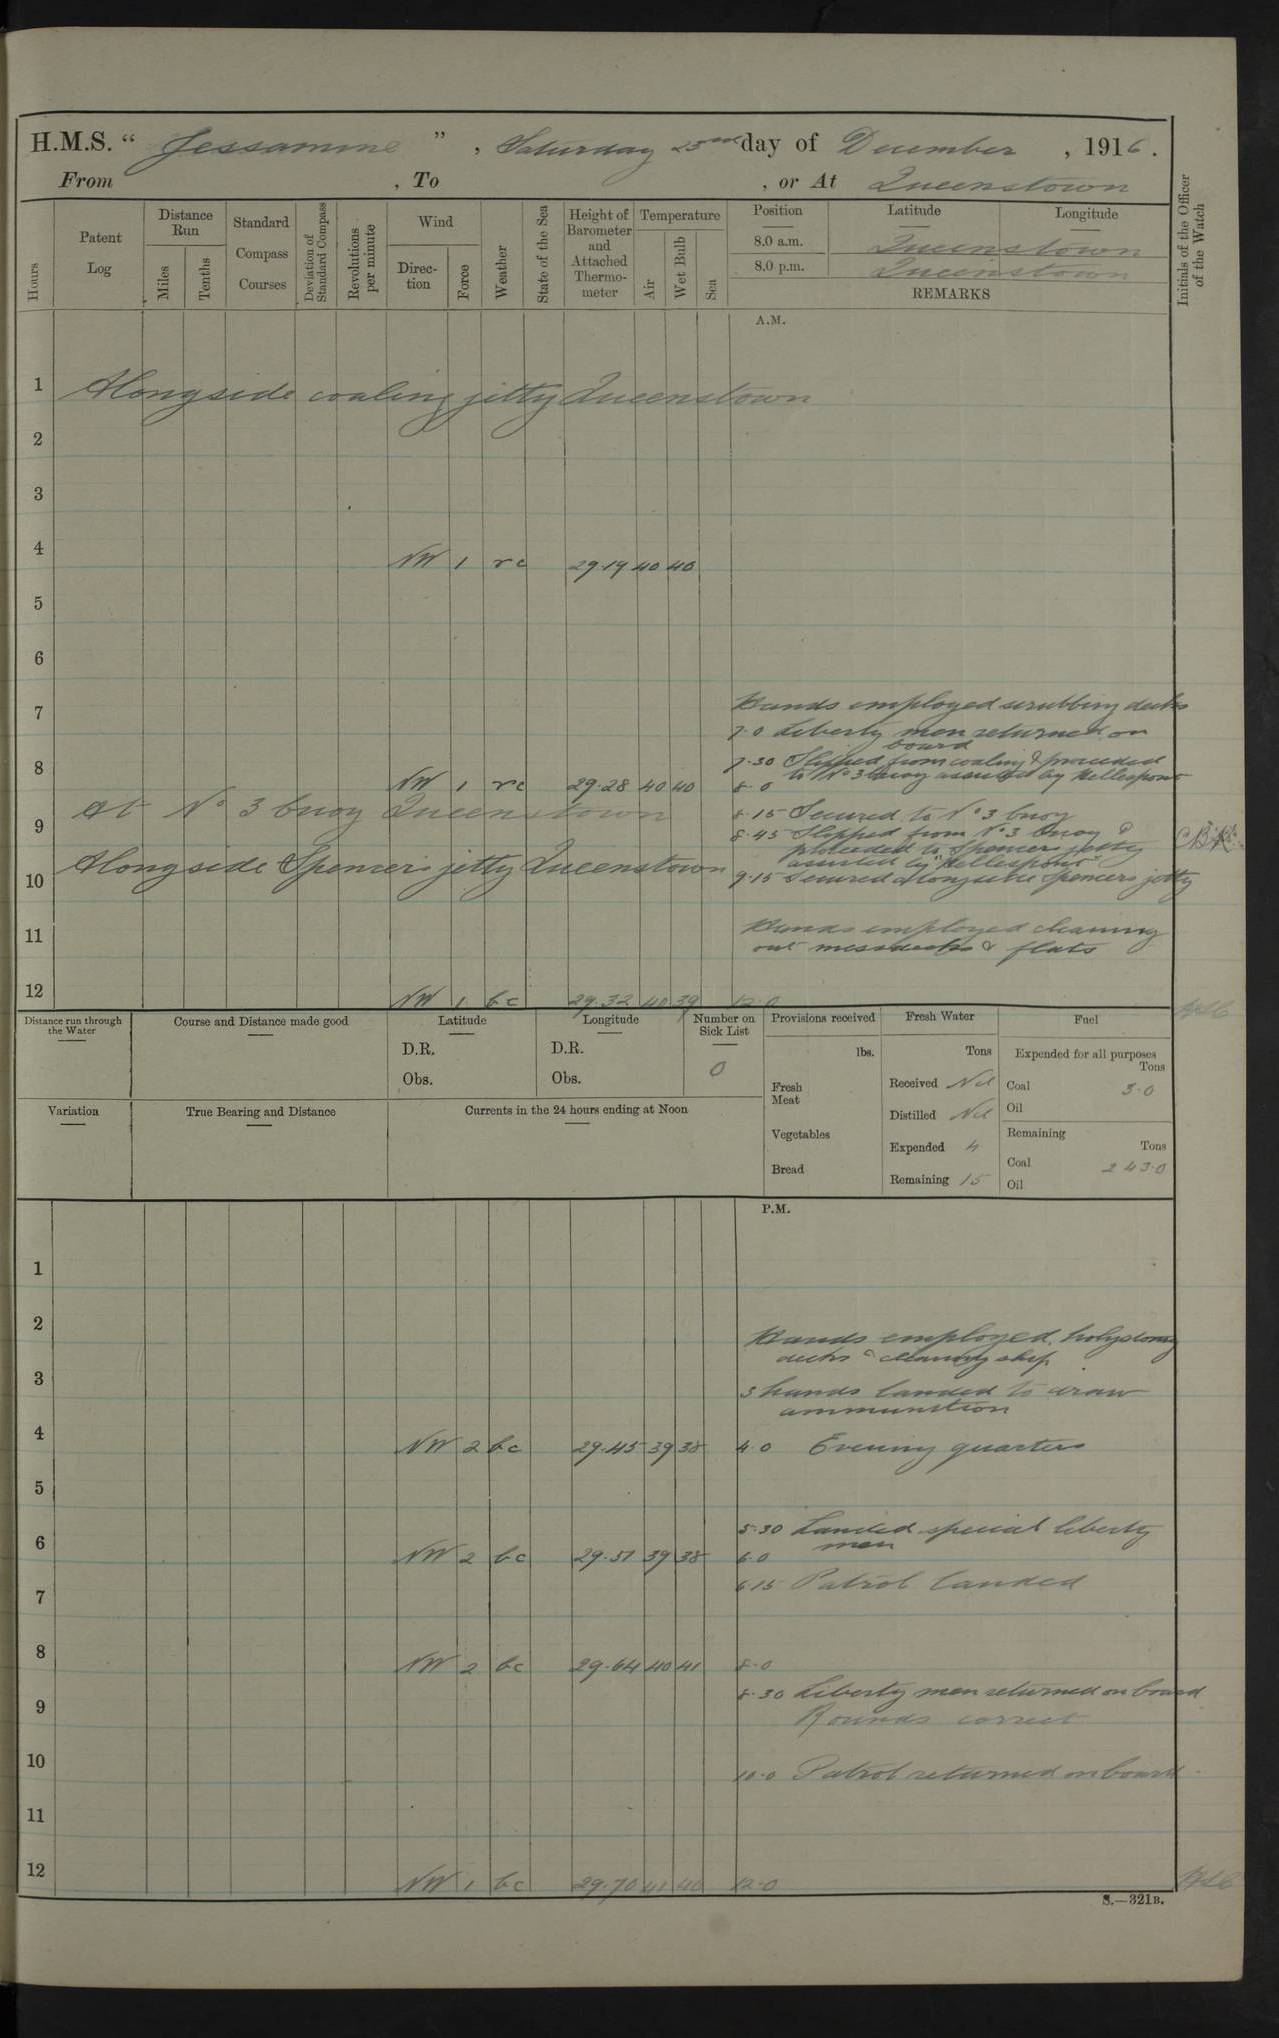 H.M.S. “ Jessamine ” , Saturday 23rd day of December , 1916 .
From , To , or At Queenstown
Hours
Patent Log
Distance Run
Miles
Tenths
Standard Compass Courses
Deviation of Standard Compass
Revolutions per minute
Wind
Direction
Force
Weather
State of the Sea
Height of Barometer and Attached Thermometer
Temperature
Air
Wet Bulb
Sea
Position
Latitude
Longitude
8.0 a.m. Queenstown
8.0 p.m. Queenstown
REMARKS
Initials of the Officer of the Watch
A.M.
1 Alongside coaling jetty Queenstown
2
3
4 NW 1 rc 29.19 40 40
5
6
Hands employed scrubbing decks
7
7.0 Liberty men returned on
board
7.30 Slipped from coaling & proceeded
to No 3 buoy assisted by Hellespont
8 NW 1 rc 29.28 40 40 8.0
At No 3 buoy Queenstown
8.15 Secured to No 3 buoy
9
8.45 Slipped from No 3 buoy &
proceeded to Spencers jetty
assisted by "Hellespont"
Alongside Spencers jetty Queenstown
10 9.15 Secured alongside Spencers jetty
11 Hands employed cleaning
out messdecks & flats
12 NW 1 bc 29.32 40 39 12.0
Distance run through the Water
Course and Distance made good
Latitude
D.R.
Obs.
Longitude
D.R.
Obs.
Number on Sick List
0
Provisions received
lbs.
Fresh Meat
Vegetables
Bread
Fresh Water
Tons
Received Nil
Distilled Nil
Expended 4
Remaining 15
Fuel
Expended for all purposes
Tons
Coal 3.0
Oil
Remaining
Tons
Coal 243.0
Oil
Variation
True Bearing and Distance
Currents in the 24 hours ending at Noon
P.M.
1
2 Hands employed holystoning
decks & cleaning ship
3 3 hands landed to draw
ammunition
4 NW 2 bc 29.45 39 38 4.0 Evening quarters
5
5.30 Landed special liberty
men
6 NW 2 bc 29.51 39 38 6.0
6.15 Patrol landed
7
8 NW 2 bc 29.64 40 41 8.0
8.30 Liberty men returned on board
9 Rounds correct
10 10.0 Patrol returned on board
11
12 NW 1 bc 29.70 41 40 12.0
S.—321B.